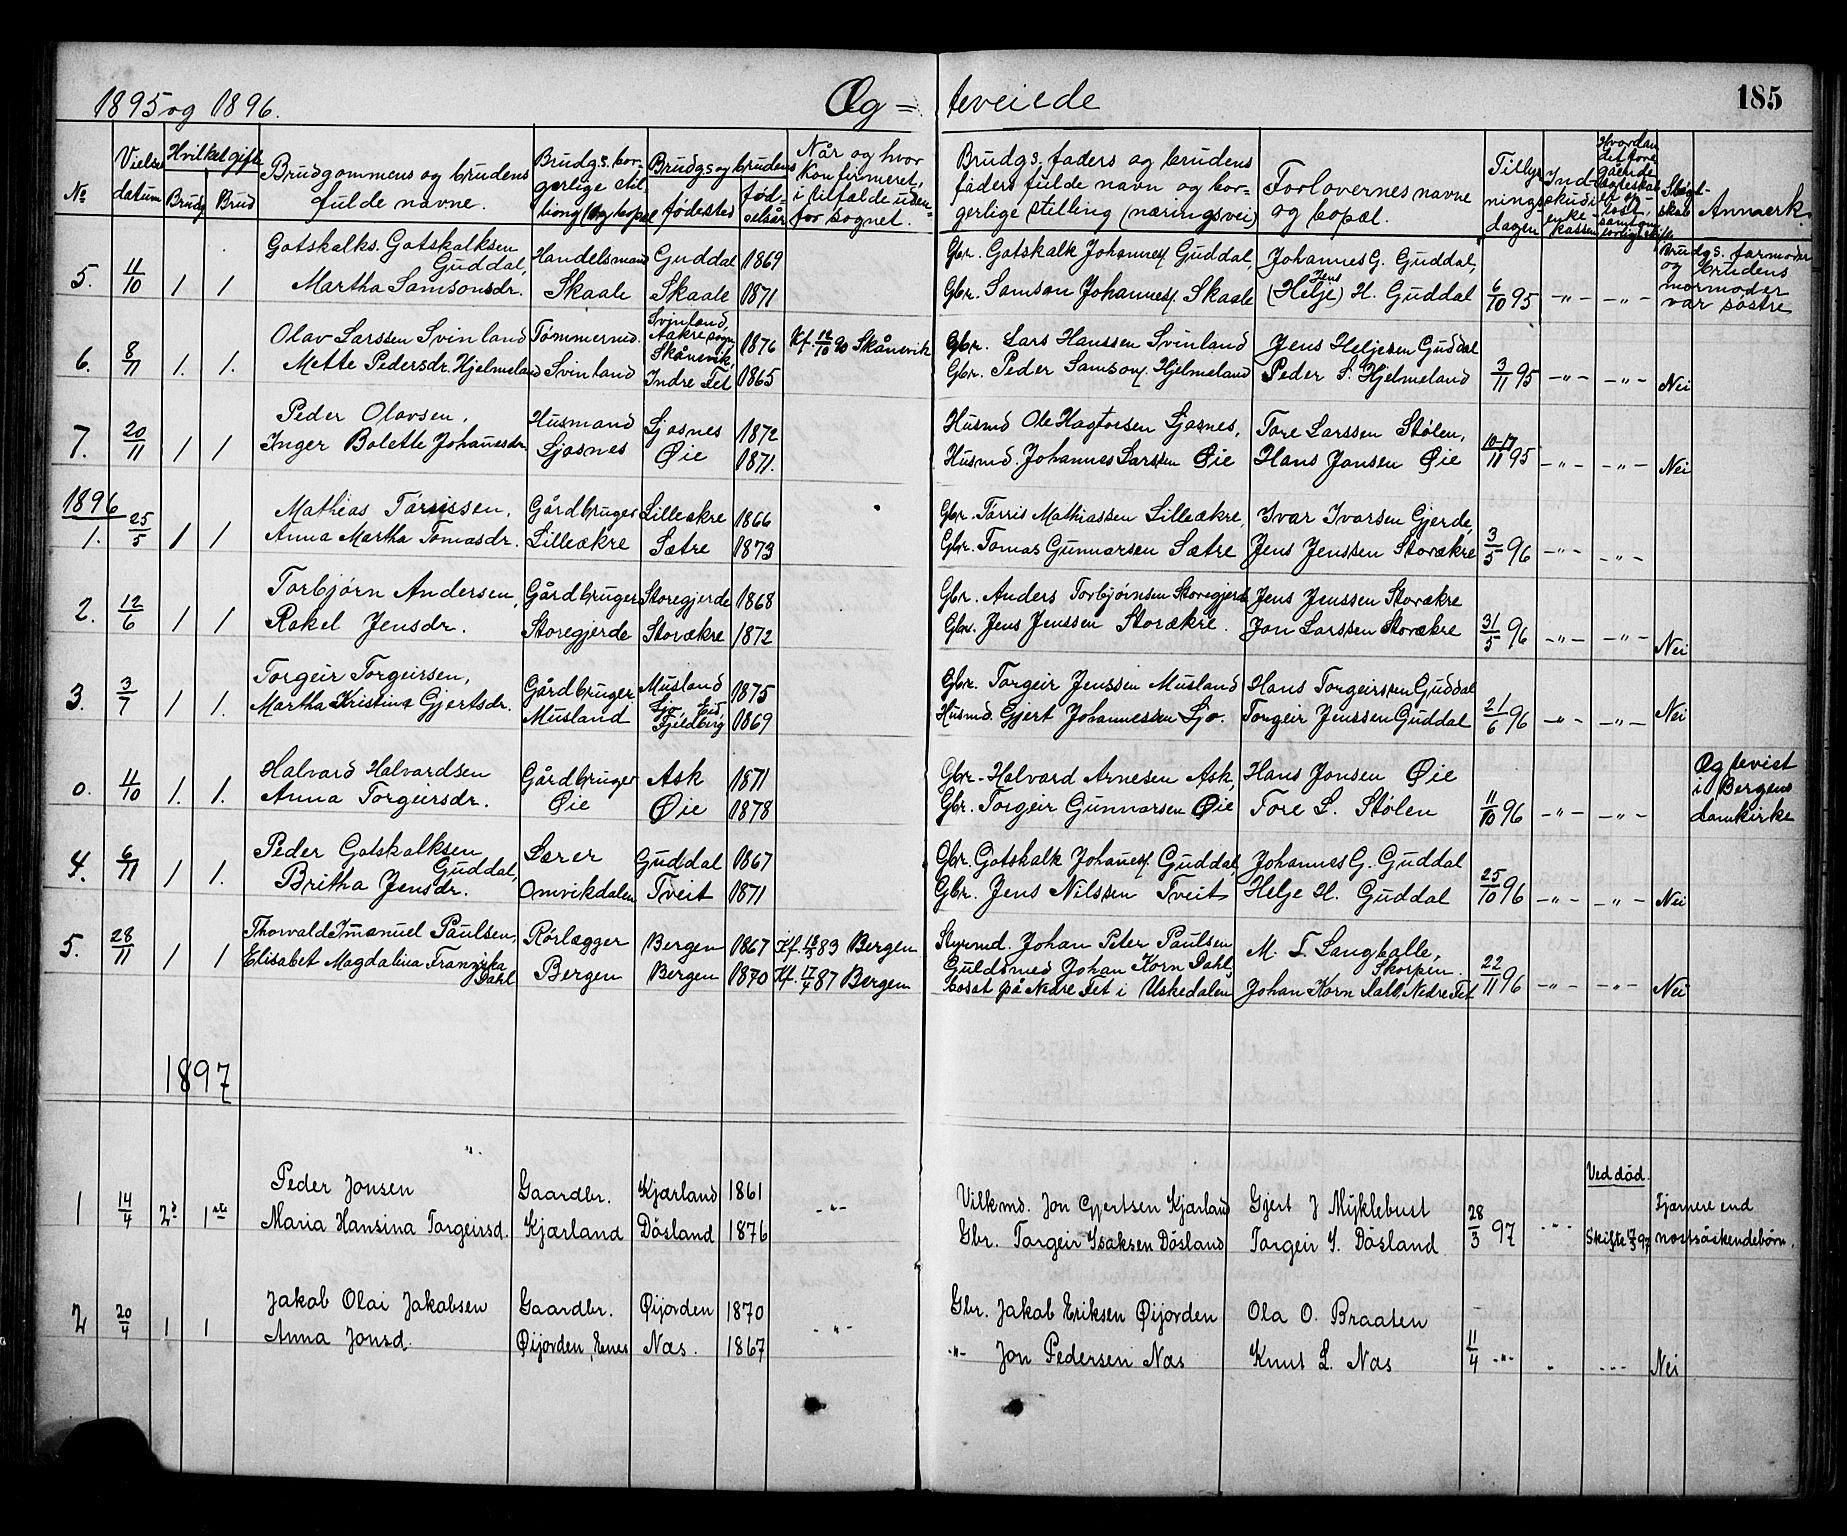 1895 og 1896.
Æg= teviede
185
No
Vielses datum
Hvilket gifte
Brudg Brud
Brudgommens og brudens fulde navne.
Brudgs. bor-
gerlige stil-
ling (og bopæl
Brudgs og brudens
fødested
fød-
selsår
Når og hvor
konfirmeret,
i tilfælde uden-
for sognet.
Brudgs. faders og brudens
faders fulde navn og bor-
gerlige stilling (næringsvei)
Forlovernes navne
og bopæl.
Tillys-
nings-
dagen
Ind-
skud i
enke
kassen
Slægt-
skab
Anmærk.
5. 11/10 1 1
Gotskalks. Gotskalksen
Guddal,
Martha Samsonsdr.
Handelsmand
Skaale
Guddal 1869
Skaale 1871
Gbr. Gotskalk Johannes. Guddal,
Gbr. Samson Johannes. Skaale
Johannes G. Guddal,
Jens
(Helje) H. Guddal
6/10 95 -"- -"-
Brudgs. farmoder
og brudens
mormoder
var søstre
6. 8/11 1. 1.
Olav Larssen Svinland
Mette Pedersdr. Hjelmeland
Tømmermd.
Svinland
Svinland,
Aakre sogn,
Skånevik, 1876
Indre Fet 1865
Kf. 12/10 90 Skånevik
Gbr. Lars Hanssen Svinland
Gbr. Peder Samson. Hjelmeland
Jens Heljesen Guddal
Peder S. Hjelmeland
3/11 95 -"- -"- Nei
7. 20/11 1 1
Peder Olavsen,
Inger Bolette Johanesdr.
Husmand
Ljosnes
Ljosnes 1872
Øie 1871.
Husmd Ole Hagtorsen Ljosnes,
Husmd. Johannes Larssen Øie
Tore Larssen Stølen,
Hans Jonsen Øie
10-17/11 95 -"- -"- Nei
1896
1. 25/5 1 1
Mathias Tørrissen,
Anna Martha Tomasdr.
Gårdbruger
Lilleåkre
Lilleåkre 1866
Sætre 1873
Gbr. Tørris Mathiassen Lilleåkre,
Gbr. Tomas Gunnarsen Sætre
Ivar Ivarsen Gjerde,
Jens Jenssen Storåkre
3/5 96 -"- -"-
2. 12/6 1 1
Torbjørn Andersen,
Rakel Jensdr.
Gårdbruger
Storegjerde
Storegjerde 1868
Storåkre 1872
Gbr. Anders Torbjørnsen Storegjerde
Gbr. Jens Jenssen Storåkre.
Jens Jenssen Storåkre
Jon Larssen Storåkre
31/5 96 -"- -"- Nei
3. 3/7 1 1.
Torgeir Torgeirsen,
Martha Kristina Gjertsdr.
Gårdbruger
Musland
Musland 1875
Sjo, Eid,
Fjeldberg 1869
Gbr. Torgeir Jenssen Musland
Husmd. Gjert Johannessen Sjo.
Hans Torgeirssen Guddal
Torgeir Jenssen Guddal
21/6 96 -"- -"- Nei
0. 11/10 1. 1.
Halvard Halvardsen
Anna Torgeirsdr.
Gårdbruger
Øie
Ask 1871
Øie 1878
Gbr. Halvard Arnesen Ask,
Gbr. Torgeir Gunnarsen Øie
Hans Jonsen Øie
Tore L. Stølen
11/10 96 -"- -"-
Ægteviet
i Bergens
domkirke
4. 6/11 1 1.
Peder Gotskalksen
Guddal,
Britha Jensdr.
Lærer
Omvikdalen
Guddal 1867
Tveit 1871
Gbr. Gotskalk Johanes. Guddal,
Gbr. Jens Nilssen Tveit
Johannes G. Guddal
Helje H. Guddal
25/10 96 -"- -"- Nei
5. 28/11 1 1
Thorvald Imanuel Paulsen,
Elisabet Magdalina Franziska
Dahl
Rørlægger
Bergen
Bergen 1867
Bergen 1870
Kf. 83 Bergen
Kf. 17/4 87 Bergen
Styrmd. Johan Peter Paulsen
Guldsmed Johan Korn Dahl,
bosat på Nedre Fet i Uskedalen
M. T. Langballe,
Skorpen.
Johan Korn Dahl, Nedre Fet
22/11 96 -"- -"- Nei
1897
1 14/4 2d 1ste
Peder Jonsen
Maria Hansina Torgeirsd.
Gaardbr.
Kjærland
Kjærland 1861
Døsland 1876
-"-
Vilkmd. Jon Gjertsen Kjærland
Gbr. Torgeir Isaksen Døsland
Gjert J Myklebust
Torgeir I. Døsland
28/3 97 -"-
Ved død.
Skifte 97
Fjærnere end
næstsøskendebørn.
2 20/4 1 1
Jakob Olai Jakobsen
Anna Jonsd.
Gaardbr.
Øijorden, Enes
Øijorden 1870
Næs. 1867
-"-
Gbr. Jakob Eriksen Øijorden
-"- Jon Pedersen Næs
Ola O. Braaten
Knut L. Næs
11/4 -"- Nei